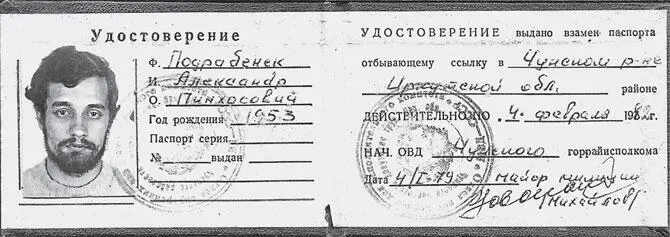 Удостоверение
Ф. Подрабенек
И. Александр
О. Пинхосович
Год рождения 1953
Паспорт серия
№ выдан
УДОСТОВЕРЕНИЕ выдано взамен паспорта
отбывающему ссылку в Чунском р-не
Иркутской обл. районе
ДЕЙСТВИТЕЛЬНО ПО 4 февраля 1982
НАЧ. ОВД Чунского горрайисполкома
Дата 4/I-79 майор милиции
Михайлов